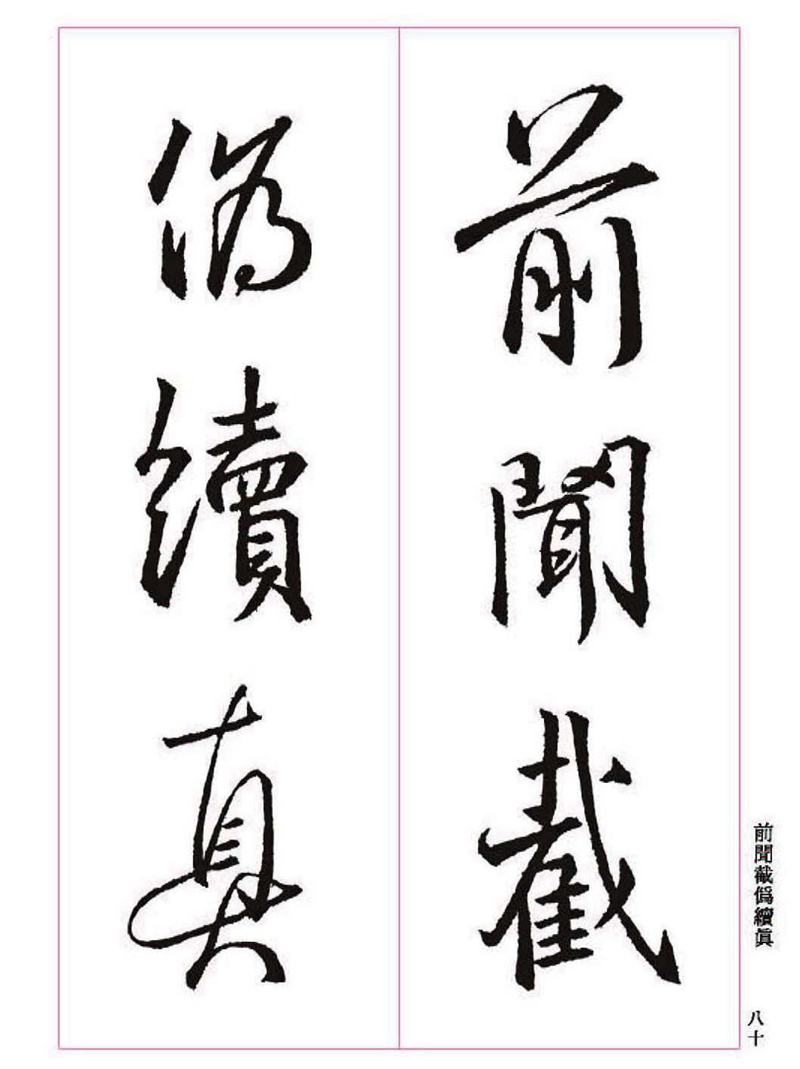 前聞截
偽續真
前聞截僞續眞
八十